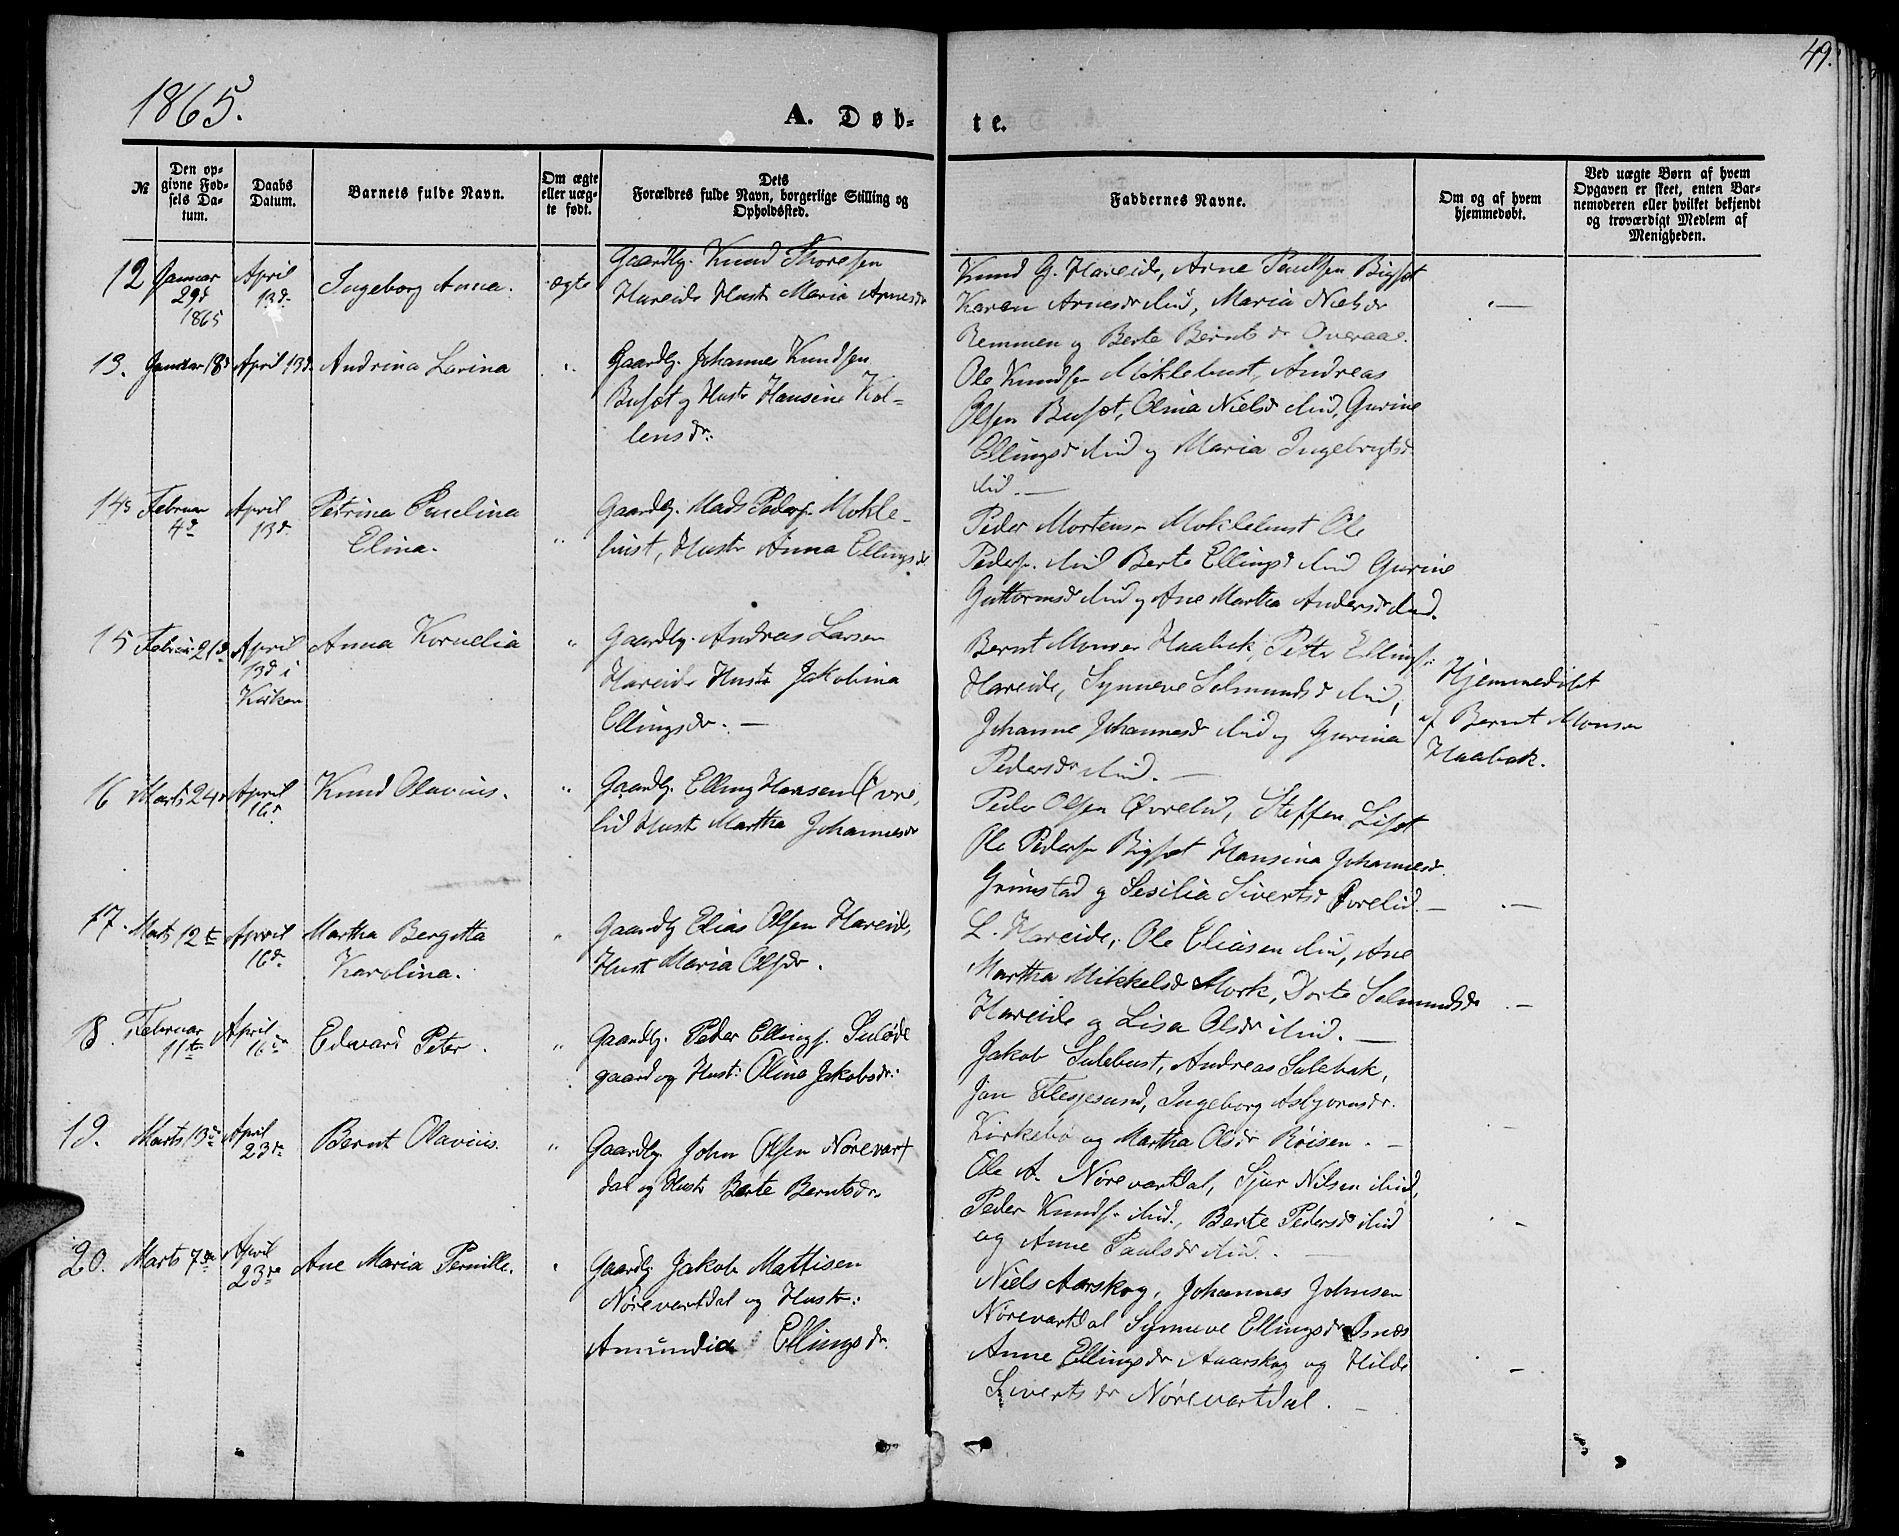 49.
1865.
A. Døb-
te.
№
Den op-
givne Fød-
sels Da-
tum.
Daabs
Datum.
Barnets fulde Navn.
Om ægte
eller uæg-
te født.
Dets
Forældres fulde Navn, borgerlige Stilling og
Opholdssted.
Faddernes Navne.
Om og af hvem
hjemmedøbt.
Ved uægte Børn af hvem
Opgaven er skeet, enten Bar-
nemoderen eller hvilket bekjendt
og troværdigt Medlem af
Menigheden.
12 Januar 29d 1865
April 13d
Ingeborg Anna.
ægte
Gaardbr. Knud Thoresen
Hareide Hustr Maria Arnesdr
Knud G. Hareide, Arne Paulsen Bigset
Karen Arnesdr ibid, Maria Nielsdr
Remmen og Berte Berntsdr Overaae.
13. Januar 18d
April 13d.
Andrina Larina
"
Gaardbr. Johannes Knudsen
Busæt og Hustr Hansine Kol-
lensdr.
Ole Knudsen Moklebust, Andreas
Olsen Busæt, Olina Nielsd ibid, Gurine
Ellingsd ibid og Maria Ingebrigtsd
ibid. —
14 Februar 4d
April 13d.
Petrina Paulina
Elina.
"
Gaardbr. Mads Peders. Mokle-
bust, Hustr Anna Ellingsdr
Peder Mortensen Moklebust Ole
Peders. ibid Berte Ellingsd ibid Gurine
Guttormsd ibid og Ane Martha Andersdr ibid.
15 Februar 21d
April 13d i
Kirken
Anna Kornelia
"
Gaardbr. Andreas Larsen
Hareide Hustr Jakobina
Ellingsdr. —
Bernt Monsen Haabak, Petter Ellings.
Hareide, Synneve Salmundsd ibid,
Johanne Johannesdr ibid og Gurina
Pedersdr ibid. —
Hjemmedøbt
af Bernt Monsen
Haabak.
16 Marts 24d
April 16d
Knud Olavius.
"
Gaardbr. Elling Hansen Øvre-
lid Hustr Martha Johannesdr
Peder Olsen Øvrelid, Steffen Liset
Ole Pedersen Bigset Hansina Johannesd.
Grimstad og Sesilia Sivertsd Øvrelid. —
17. Marts 12te
April 16d.
Martha Bergitta
Karolina.
"
Gaardbr Elias Olsen Hareide,
Hustr Maria Olsdr.
L. Hareide, Ole Eliasen ibid, Ane
Martha Mikkelsd Mork, Dorte Salmundsdr
Hareide og Lisa Olsdr ibid. —
18. Februar 11te
April 16de
Edvard Peter.
"
Gaardbr. Peder Ellings. Suløde
gaard og Hust: Oline Jakobsdr:
Jakob Sulebust, Andreas Sulebak,
Jon Flesjesund, Ingeborg Asbjørnsdr.
Kirkebø og Martha Olsdr Røisen. —
19. Marts 13de
April 23de
Bernt Olavius.
"
Gaardbr. John Olsen Nørevart
dal og Hustr Berte Berntsdr.
Ole A. Nørevartdal, Sjur Nilsen ibid,
Peder Knuds. ibid., Berte Pedersdr ibid
og Anne Paulsdr ibid. —
20. Marts 7de
April 23de
Ane Maria Pernille.
"
Gaardbr Jakob Mattisen
Nørevartdal og Hustr:
Amundia Ellingsdr.
Niels Aarskog, Johannes Johnsen
Nørevartdal Synneve Ellingsdr Osnæs
Anne Ellingsdr Aaarskog og Hilde
Sivertsdr Nørevartdal. —